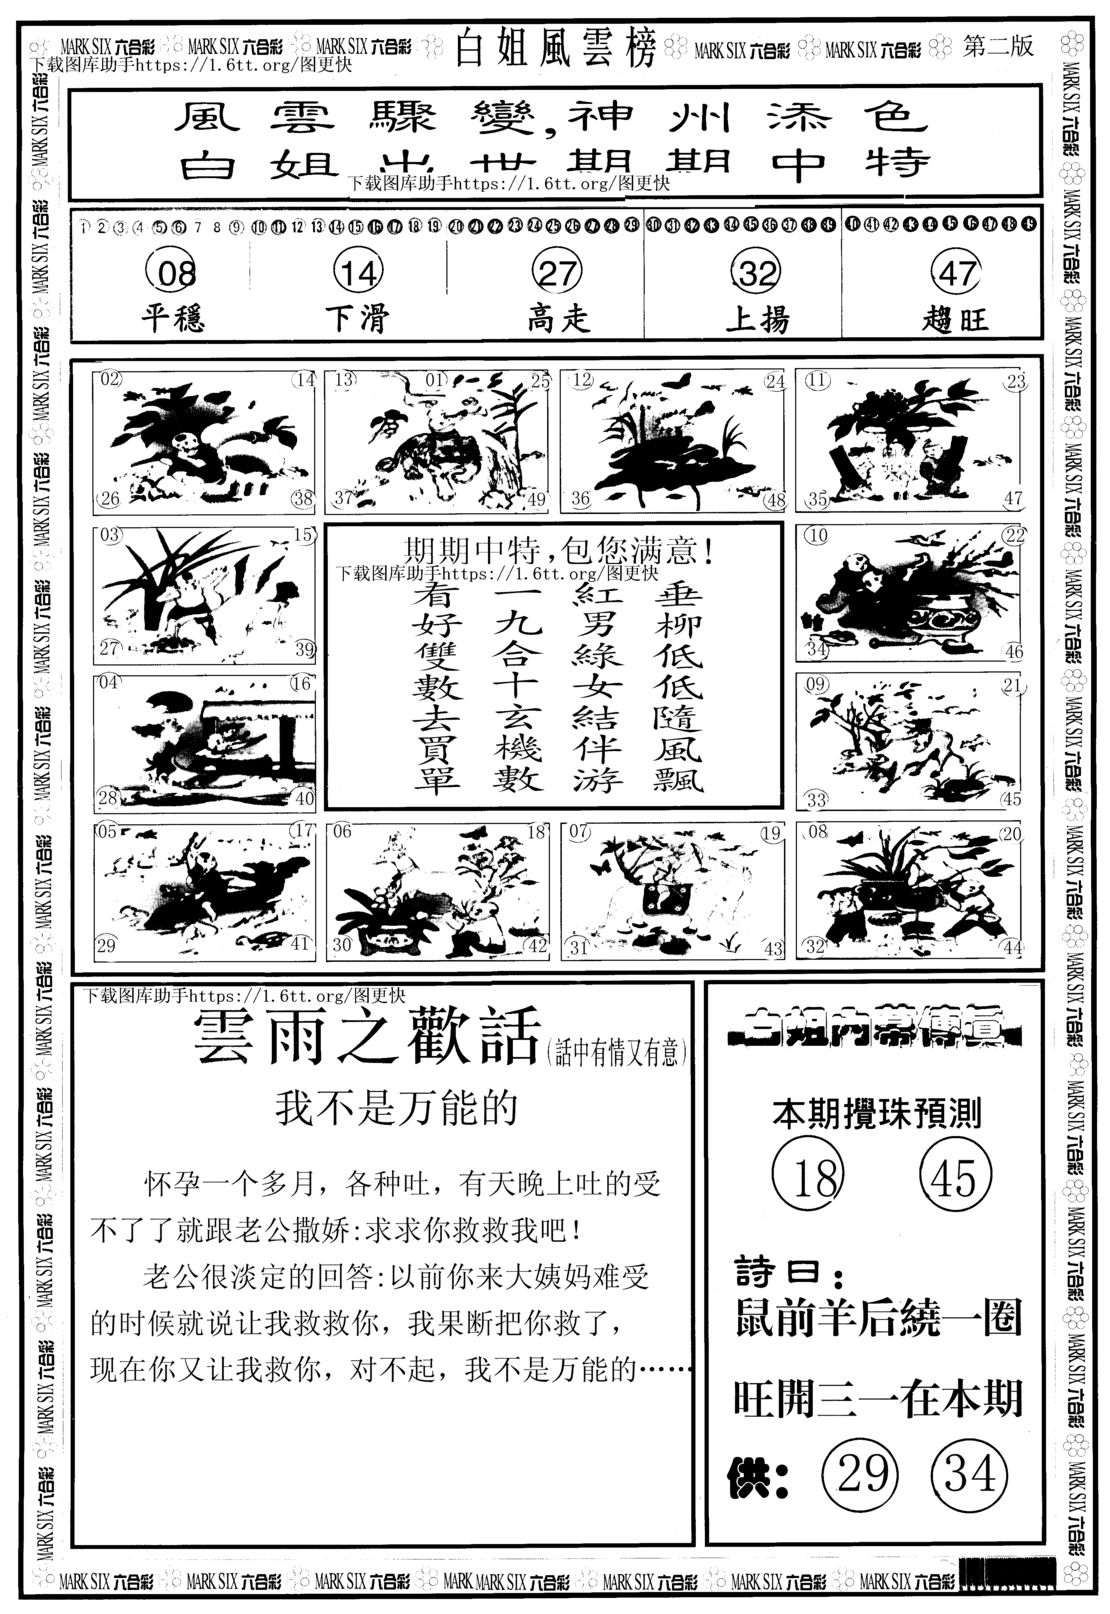 MARK SIX 六合彩 MARK SIX 六合彩 MARK SIX 六合彩 白姐風雲榜 MARK SIX 六合彩 MARK SIX 六合彩 第二版
下载图库助手https://1.6tt.org/图更快
風雲驟變,神州添色
白姐出世期期中特
下载图库助手https://1.6tt.org/图更快
1 2 3 4 5 6 7 8 9 10 11 12 13 14 15 16 17 18 19 20 21 22 23 24 25 26 27 28 29 30 31 32 33 34 35 36 37 38 39 40 41 42 43 44 45 46 47 48 49
08 14 27 32 47
平穩 下滑 高走 上揚 趨旺
02 14 13 01 25 12 24 11 23
26 38 37 49 36 48 35 47
03 15
27 39
04 16
28 40
期期中特,包您满意!
下载图库助手https://1.6tt.org/图更快
垂柳低低隨風飄
紅男綠女結伴游
一九合十玄機數
看好雙數去買單
10 22
34 46
09 21
33 45
05 17 06 18 07 19 08 20
29 41 30 42 31 43 32 44
下载图库助手https://1.6tt.org/图更快
雲雨之歡話(話中有情又有意)
我不是万能的
怀孕一个多月，各种吐，有天晚上吐的受
不了了就跟老公撒娇:求求你救救我吧!
老公很淡定的回答:以前你来大姨妈难受
的时候就说让我救救你，我果断把你救了，
现在你又让我救你，对不起，我不是万能的……
白姐内幕傳真
本期攪珠預測
18 45
詩曰:
鼠前羊后繞一圈
旺開三一在本期
供: 29 34
MARK SIX 六合彩 MARK SIX 六合彩 MARK SIX 六合彩 MARK MARK SIX 六合彩 MARK SIX 六合彩 MARK SIX 六合彩 MARK SIX 六合彩